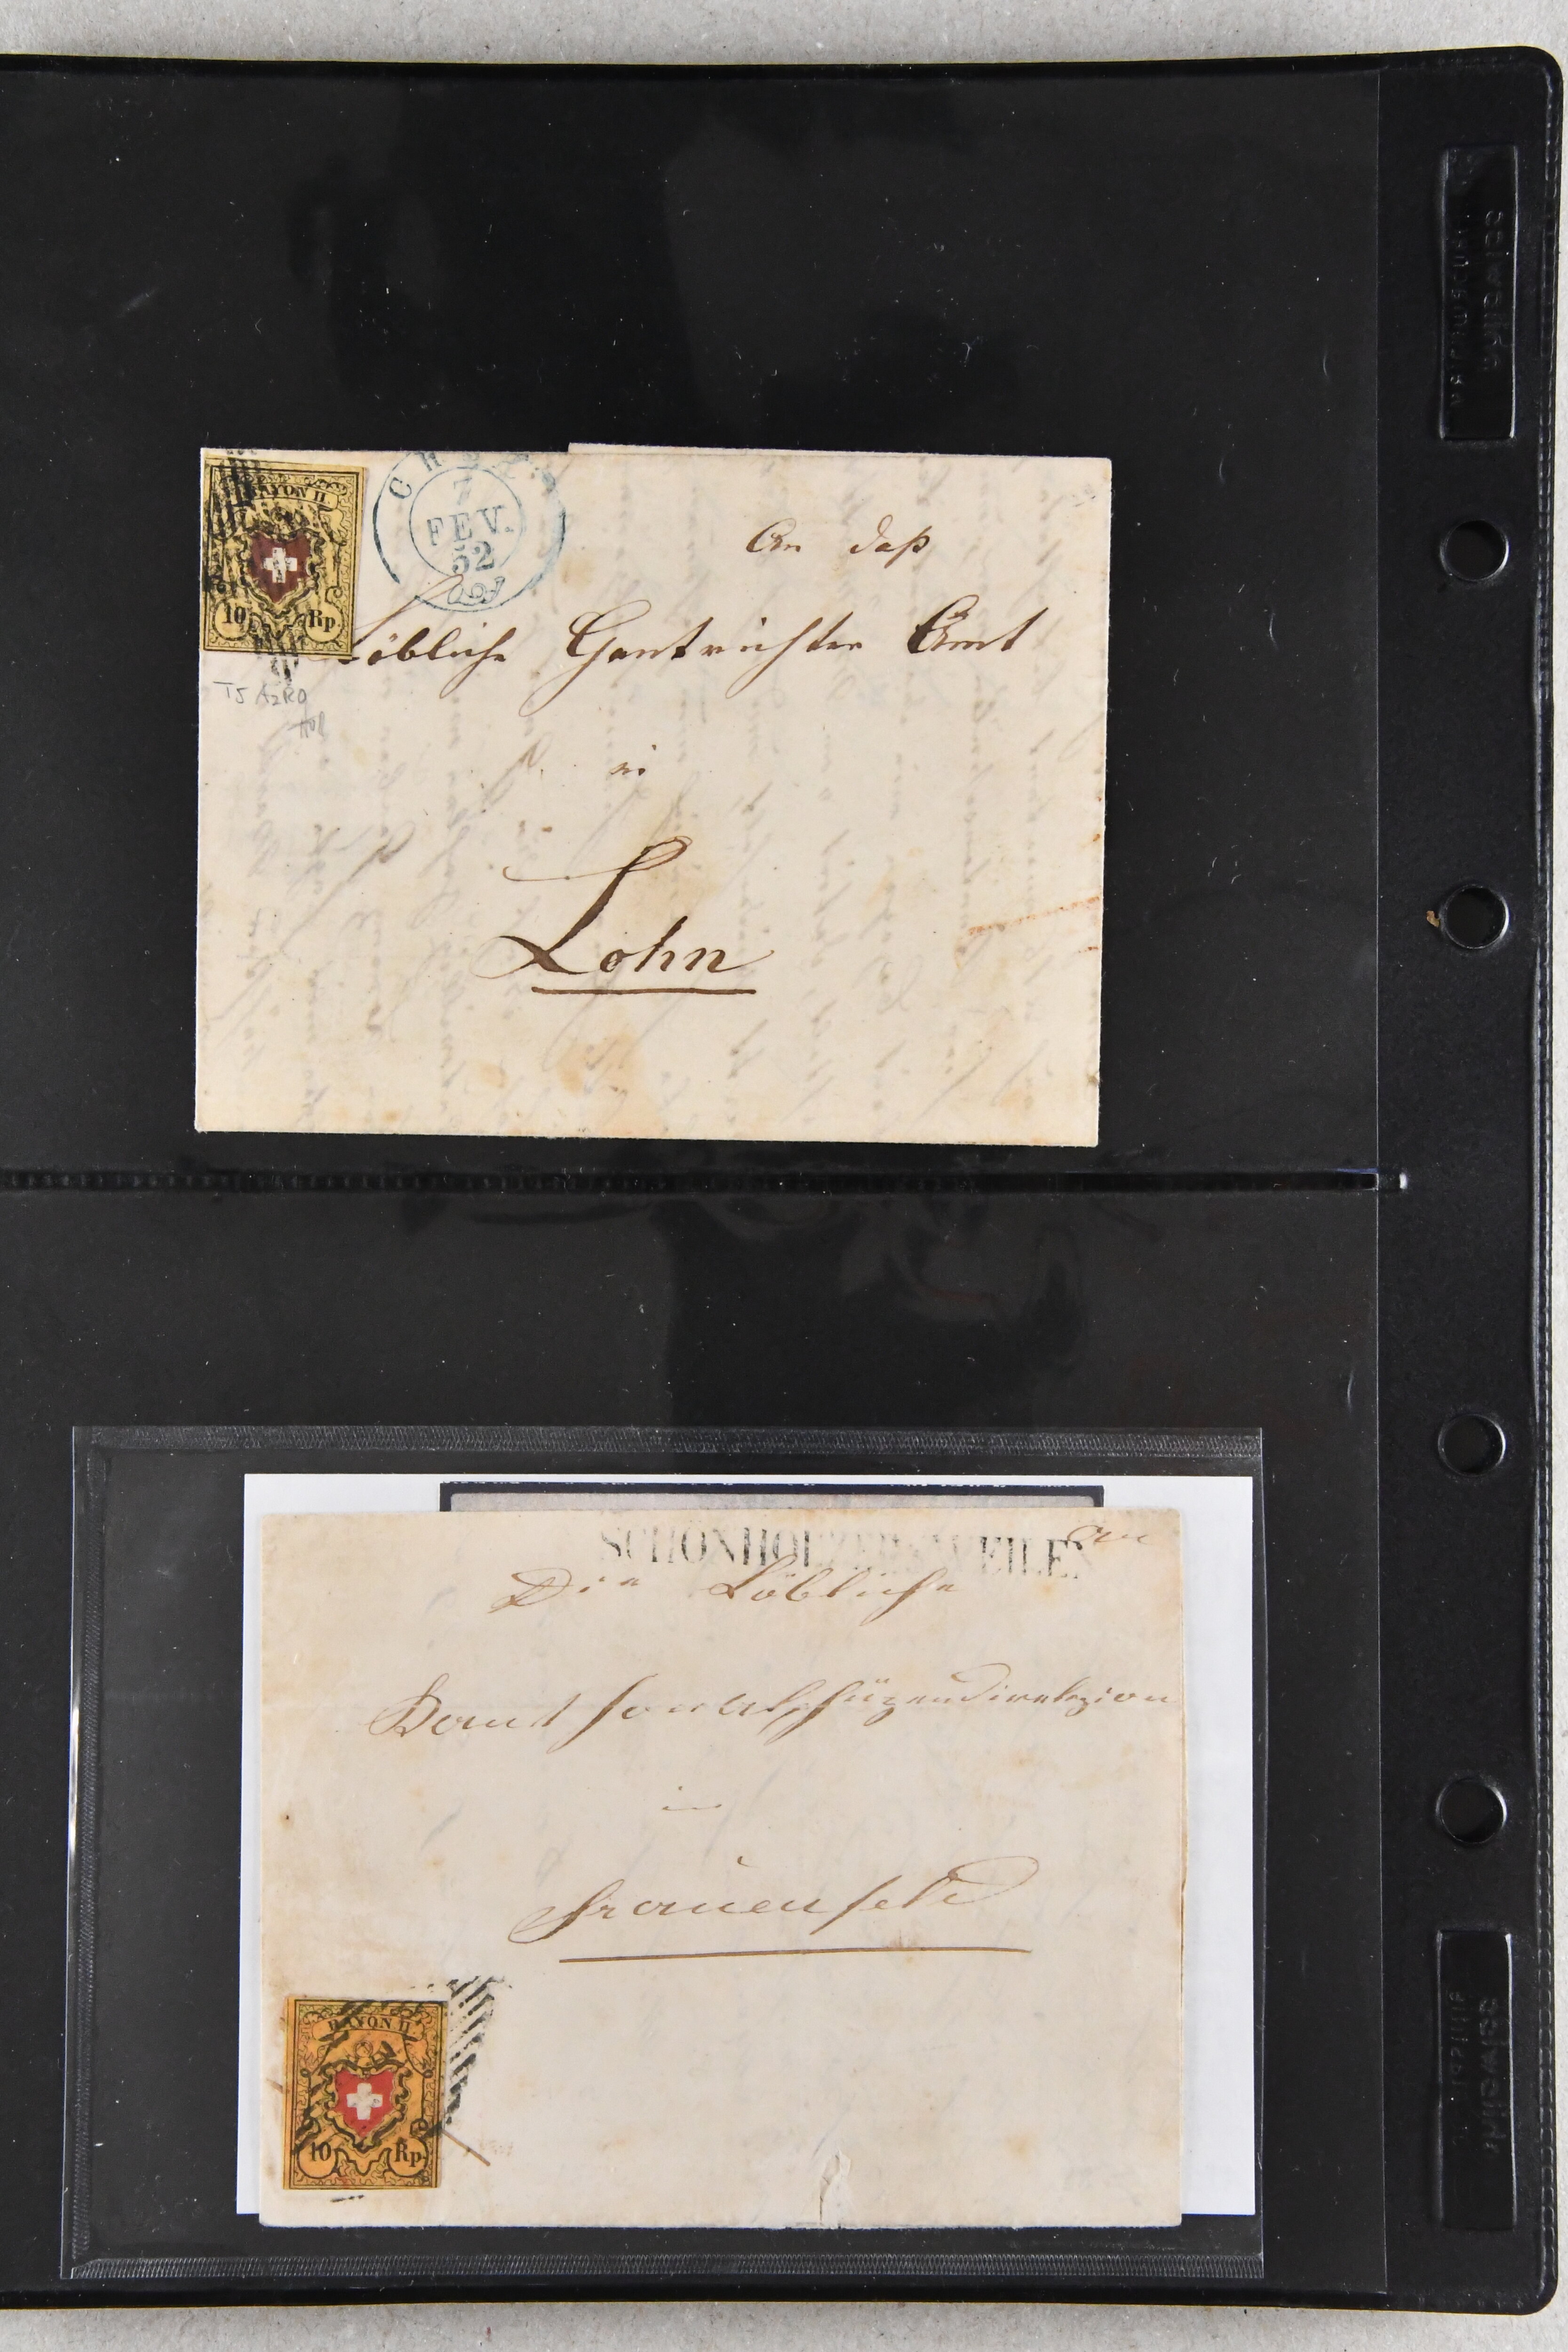 RAYON II.
10 Rp.
CHUR
7
FEV.
52
T5 A2RO
An das
Löbliche Gantrichter Amt
in
Lohn
SCHÖNHOLZERSWEILEN
An
Die Löbliche
in
Frauenfeld
RAYON II.
10 Rp.